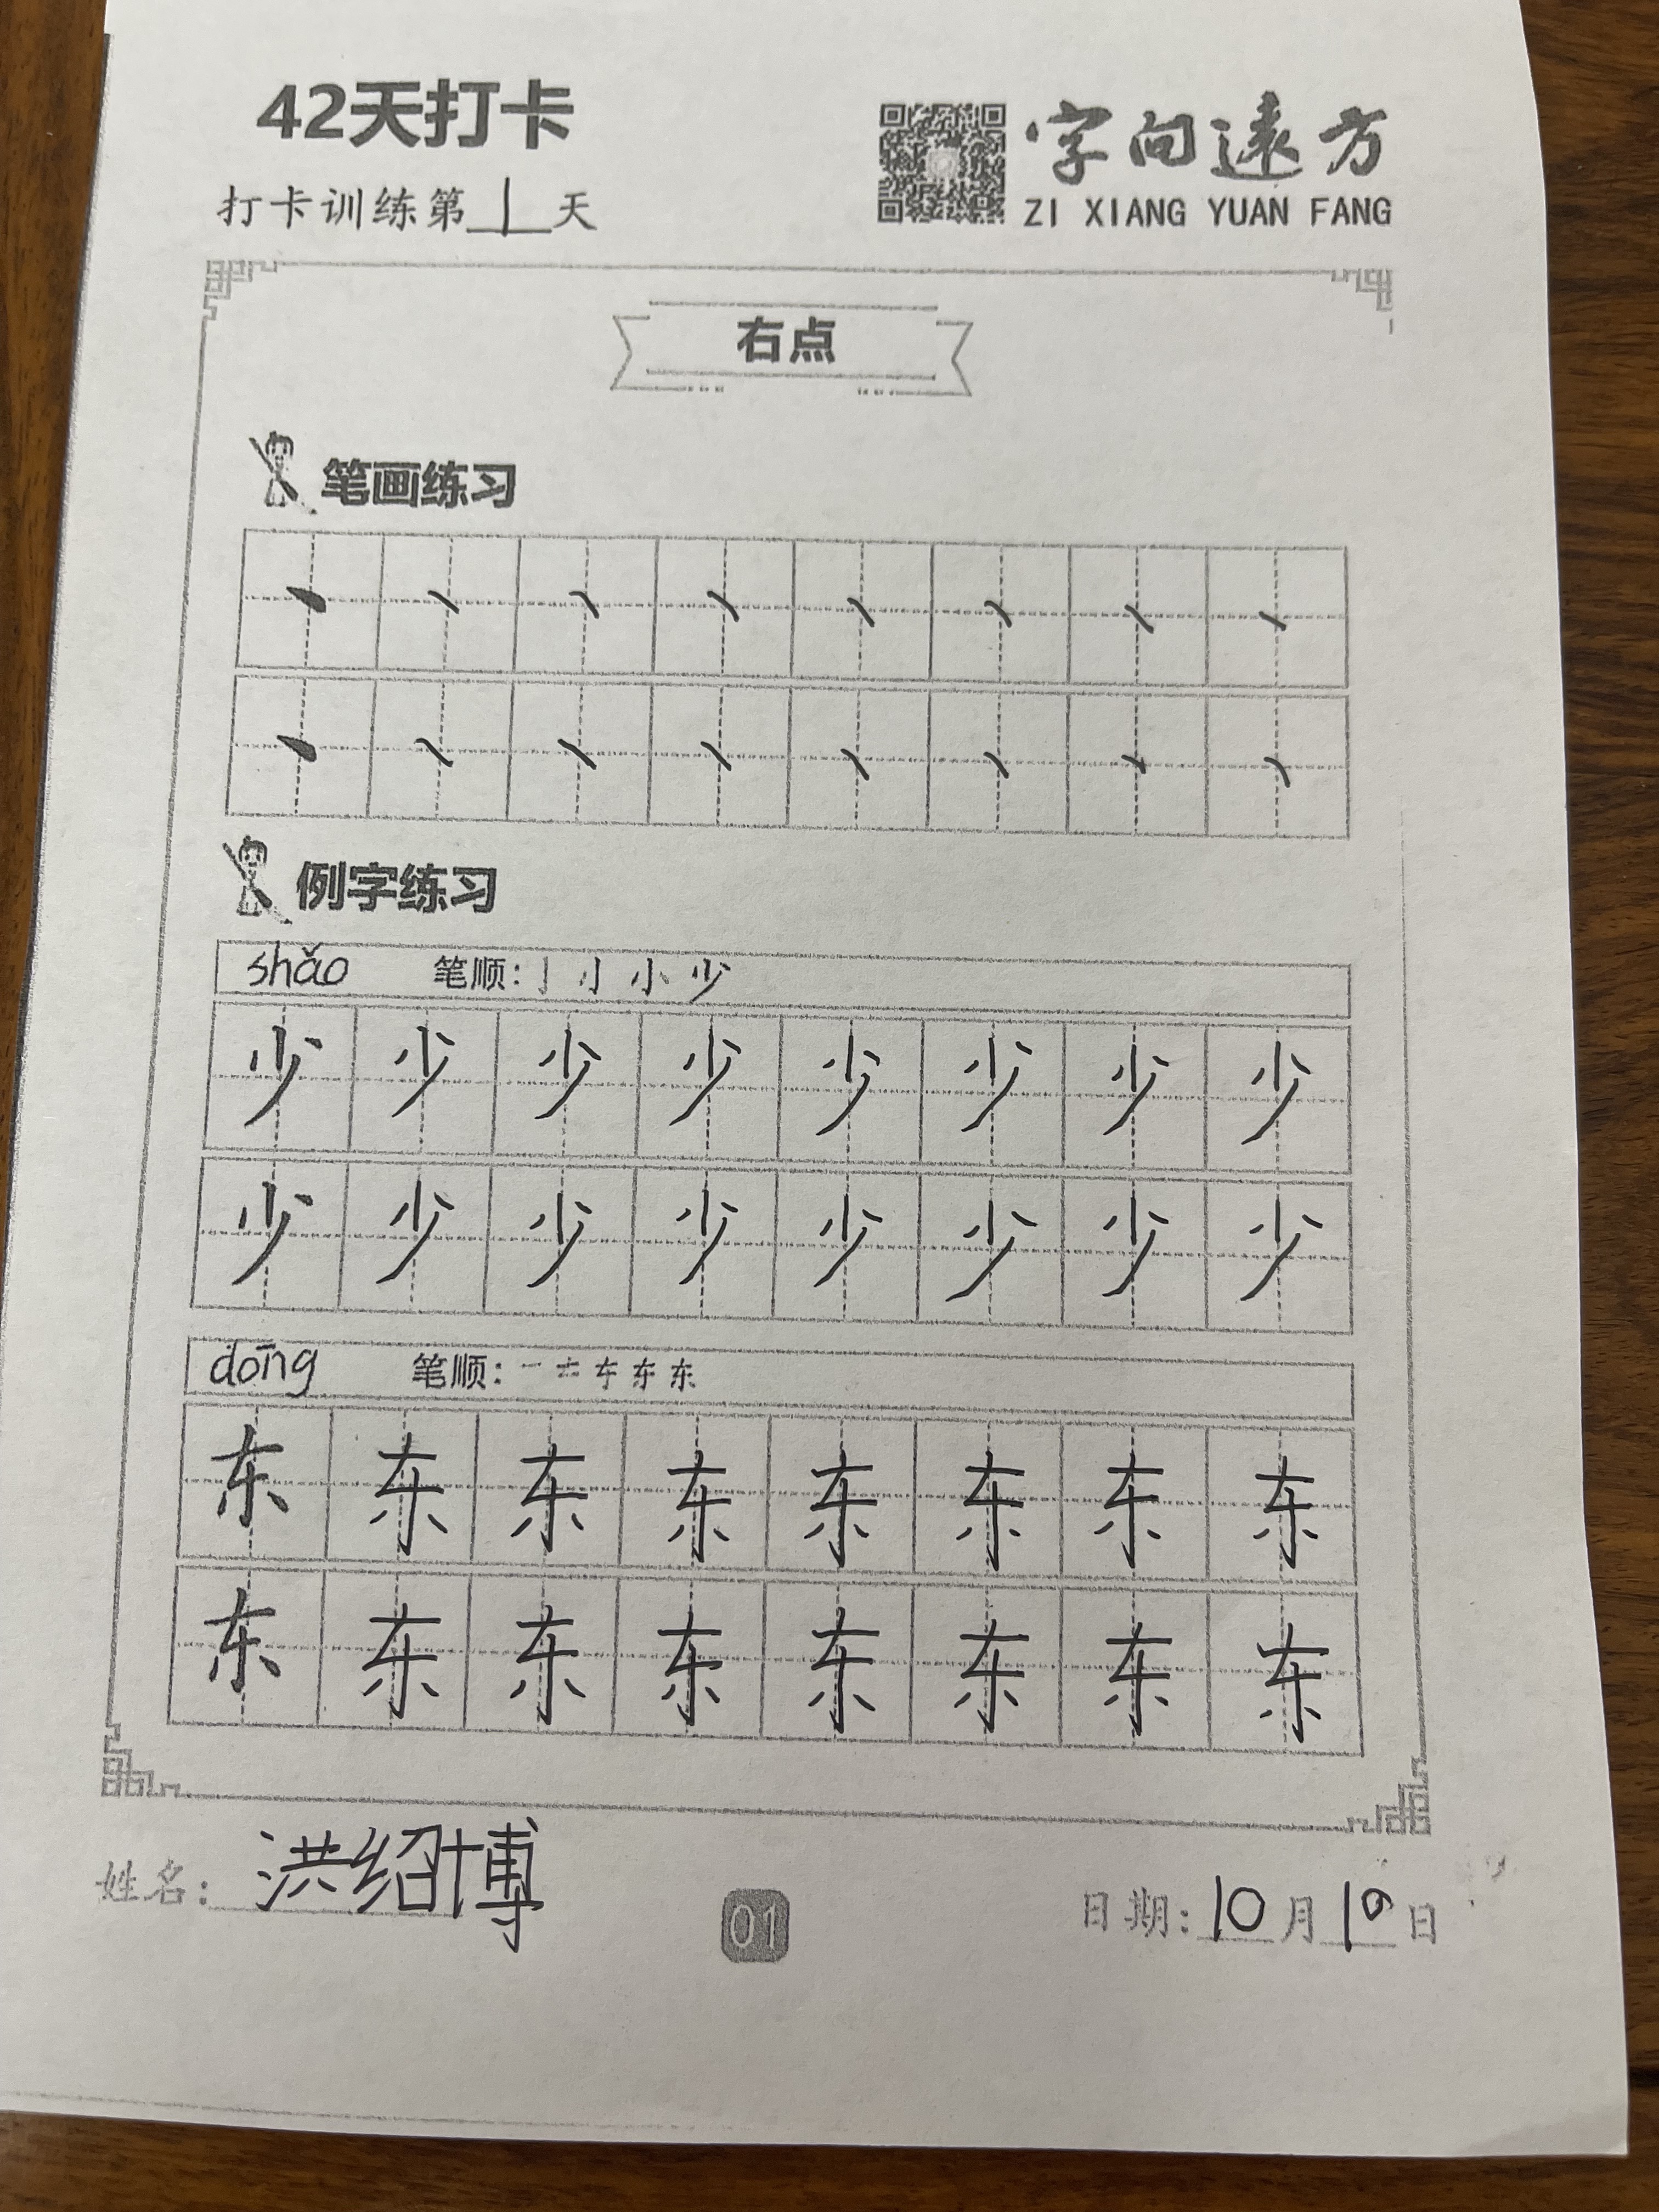 42天打卡
打卡训练第1天
字向遠方
ZI XIANG YUAN FANG
右点
笔画练习
丶 丶 丶 丶 丶 丶 丶 丶
丶 丶 丶 丶 丶 丶 丶 丶
例字练习
shǎo 笔顺: 亅 小 少
少 少 少 少 少 少 少 少
少 少 少 少 少 少 少 少
dōng 笔顺: 一 东
东 东 东 东 东 东 东 东
东 东 东 东 东 东 东 东
姓名: 洪绍博
01
日期: 10月 日